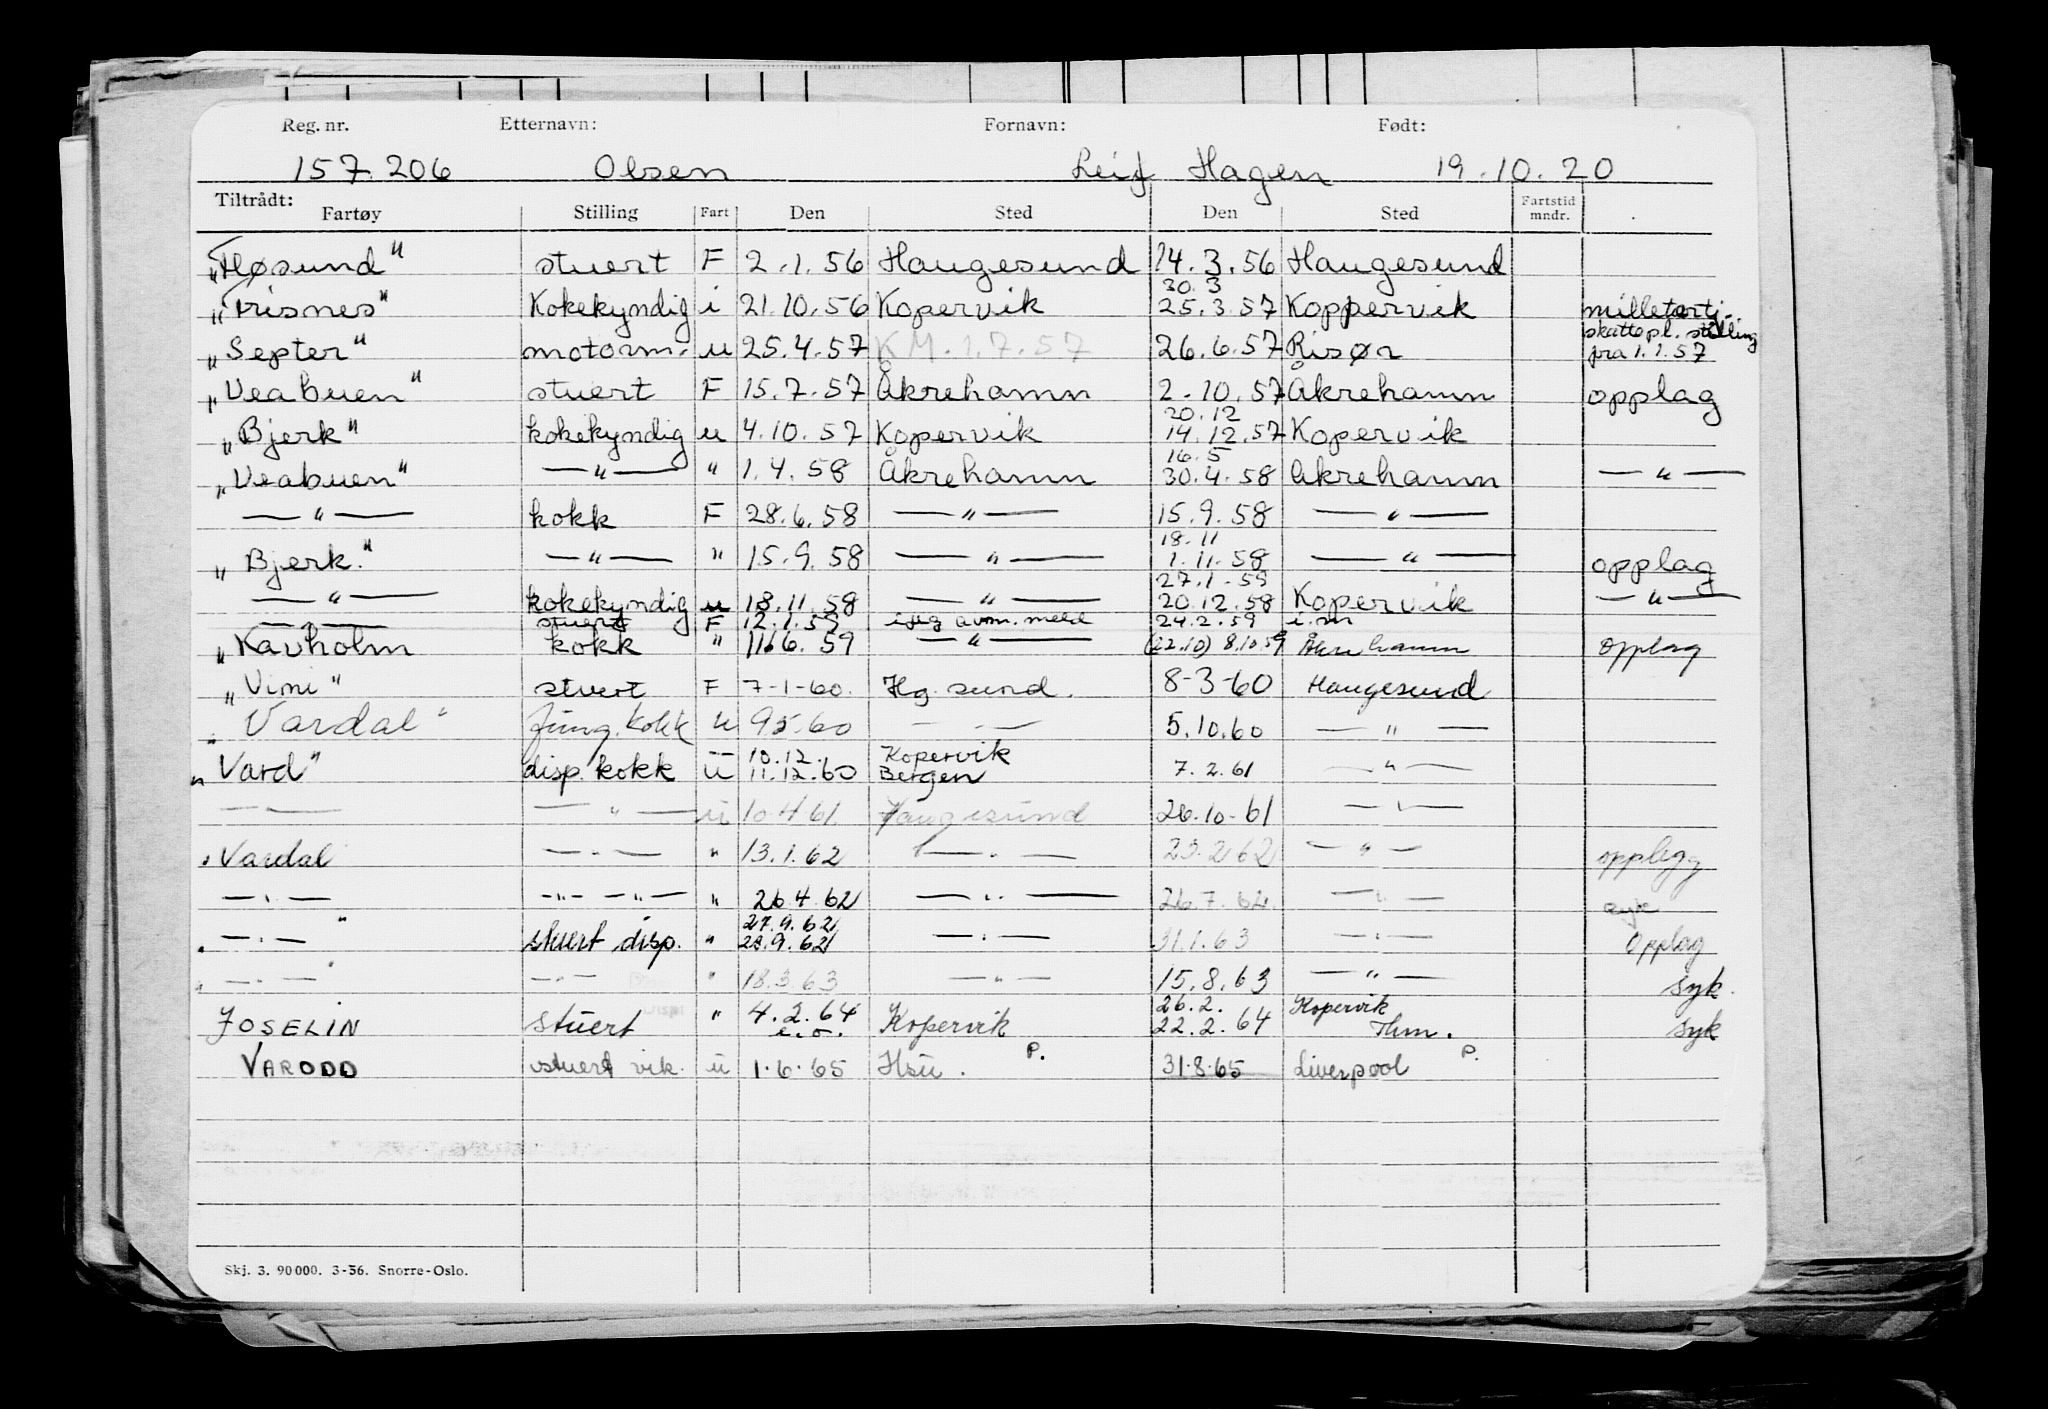 Reg. nr. Etternavn: Fornavn: Født:
157.206 Olsen Leif Hagen 19.10.20
Tiltrådt:
Fartøy Stilling Fart Den Sted Den Sted Fartstid mndr.
„Høsund" stuert F 2.1.56 Haugesund 14.3.56 Haugesund
30.3
„Trisnes" Kokekyndig i 21.10.56 Kopervik 25.3.57 Koppervik
skattepl. stilling
„Septer" motorm. u 25.4.57 KM.1.7.57 26.6.57 Risør fra 1.1.57
„Veabuen" stuert F 15.7.57 Åkrehamn 2.10.57 Åkrehamn opplag
20.12
„Bjerk" kokekyndig u 4.10.57 Kopervik 14.12.57 Kopervik
16.5
„Veabuen" —"— " 1.4.58 Åkrehamn 30.4.58 Åkrehamn —"—
—"— kokk F 28.6.58 —"— 15.9.58 —"—
18.11
„Bjerk." —"— " 15.9.58 —"— 1.11.58 —"— opplag
27.1.59
—"— kokekyndig u 18.11.58 —"— 20.12.58 Kopervik —"—
—"— stuert F 12.1.59 avm. meld 24.2.59 i.m
„Kavholm kokk " 11.6.59 —"— (22.10) 8.10.59 Åkrehamn opplag
„Vimi" stuert F 7-1-60. Hg.sund. 8-3-60 Haugesund
„Vardal" fung. kokk u 9.5.60 —"— 5.10.60 —"—
10.12. Kopervik
„Vard" disp. kokk u 11.12.60 Bergen 7.2.61 —"—
—"— —"— u 10.4.61 Haugesund 26.10.61 —"—
„Vardal —"— " 13.1.62 —"— 23.2.62 —"— opplegg
—"— —"— —"— " 26.4.62 —"— 26.7.62. —"— syk
27.9.62
„—"—" stuert disp. " 28.9.62 —"— 31.1.63 —"— Opplag
„—"—" —"— " 18.3.63 —"— 15.8.63 —"— syk.
26.2. Kopervik
JOSELIN stuert " 4.2.64 Kopervik 22.2.64 Thm. syk
e.o.
VARODD stuert vik. u 1.6.65 Hsu. P. 31.8.65 Liverpool P.
Skj. 3. 90000. 3-56. Snorre-Oslo.